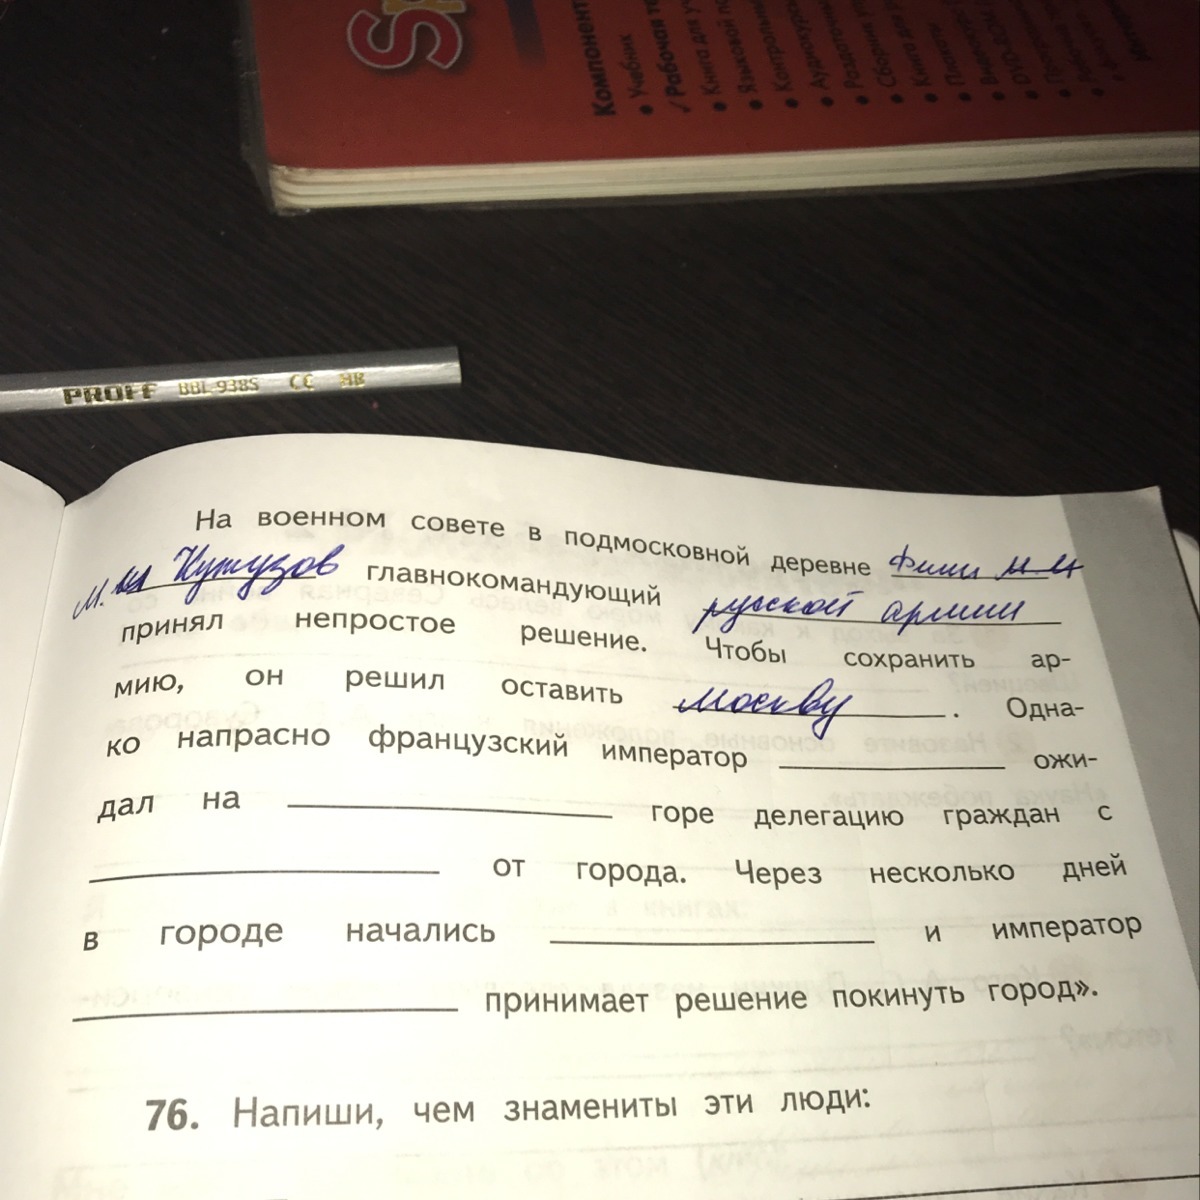 Sp
Компонент
• Учебник
✓ Рабочая те
• Книга для уч
• Языковой по
• Контрольны
• Аудиокурсы
• Раздаточны
• Сборник упр
• Книга для р
• Плакаты
PROFF BBL-938S CC HB
На военном совете в подмосковной деревне Фили М.И
М.И Кутузов главнокомандующий русской армии
принял непростое решение. Чтобы сохранить ар-
мию, он решил оставить Москву . Одна-
ко напрасно французский император ожи-
дал на горе делегацию граждан с
от города. Через несколько дней
в городе начались и император
принимает решение покинуть город».
76. Напиши, чем знамениты эти люди: